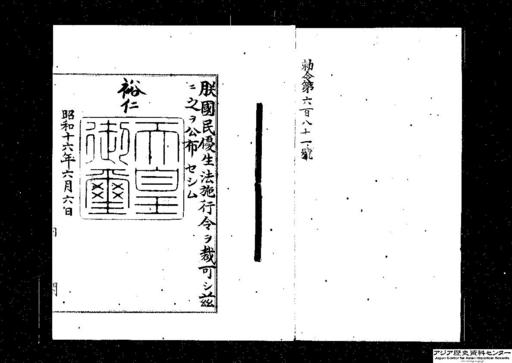 勅令第六百八十一號
朕國民優生法施行令ヲ裁可シ茲
ニ之ヲ公布セシム
裕仁
天皇御璽
昭和十六年六月六日
アジア歴史資料センター
Japan Center for Asian Historical Records